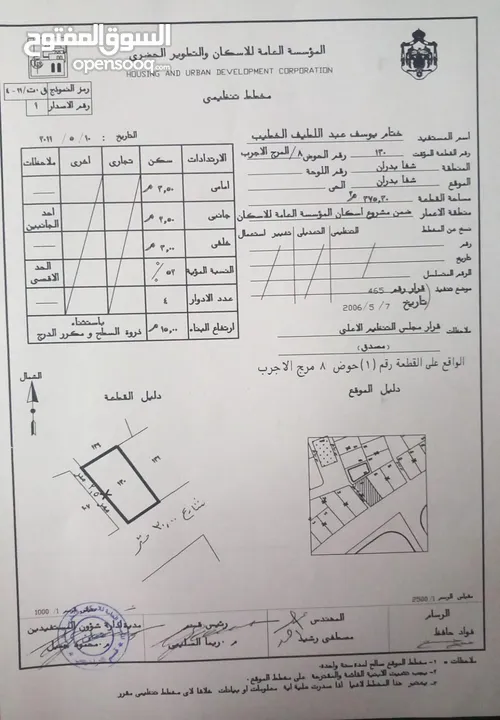 السوق المفتوح
opensooq.com
المؤسسة العامة للاسكان والتطوير الحضري
HOUSING AND URBAN DEVELOPMENT CORPORATION
مخطط تنظيمي
رقم الاصدار ١
اسم المستفيد ختام يوسف عبد اللطيف الخطيب
التاريخ : ١٠ / ٥ / ٢٠١١
رقم القطعة المؤقت ١٣٠ رقم الحوض ٨/المرج الاجرب
المنطقة شفا بدران رقم اللوحة
الموقع شفا بدران الحي
مساحة القطعة ٣٧٥,٣٠ م٢
منطقة الاعمار ضمن مشروع اسكان المؤسسة العامة للاسكان
نسخ عن المخطط التنظيمي التعديلي تغيير استعمال
رقم
تاريخ
الرقم المتسلسل
موضع تنفيذ قرار رقم 465
تاريخ 2006/5/7
ملاحظات قرار مجلس التنظيم الاعلى
(مصدق)
الواقع على القطعة رقم (١) حوض ٨ مرج الاجرب
الارتدادات سكن تجاري اخرى ملاحظات
امامي ٣,٥٠ م
جانبي ٢,٥٠ م احد الجانبين
خلفي ٣,٠٠ م
النسبة المئوية ٥٢ % الحد الاقصى
عدد الادوار ٤
ارتفاع البناء ١٥,٠٠ م باستثناء
غروة السطح و مكرر الدرج
الشمال
دليل القطعة
دليل الموقع
١٢٩
١٣١
١٣٠
شارع ٣٠,٠٠ متر
مقياس الرسم 1/ 2500
مقياس الرسم 1/ 1000
الرسام
فواد حافظ
المهندس
مصطفى رشيد
رئيس قسم
م. ريما
مديرة ادارة شؤون المستفيدين
ملاحظات ١- مخطط الموقع صالح لمدة سنة واحدة.
٢- يجب تثبيت الابنية القائمة والمقترحة على مخطط الموقع.
٣- يعتبر هذا المخطط لاغيا اذا صدرت عليه اية معلومات او بيانات خلافا لاي مخطط تنظيمي مقرر